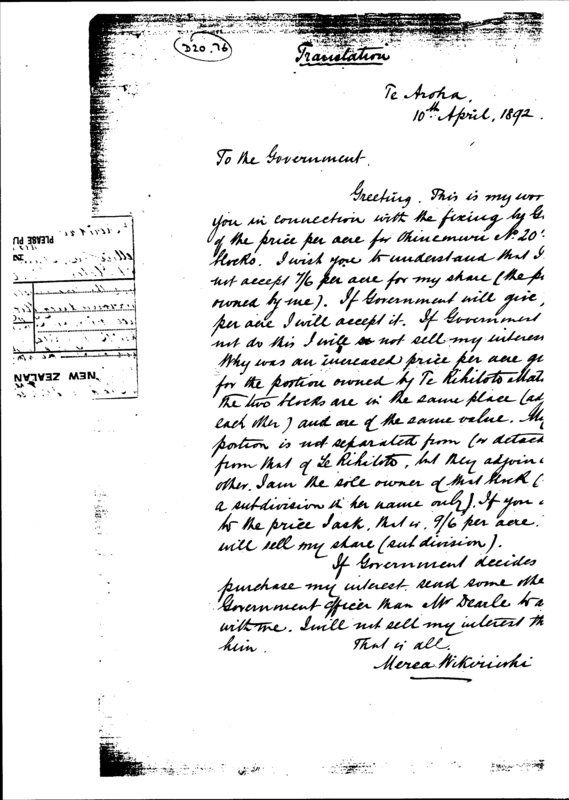 D20.76
Translation
Te Aroha,
10th April, 1892.
To the Government.
Greeting. This is my wor
you in connection with the fixing by G
of the price per acre for Ohinemuri No. 20
blocks. I wish you to understand that I
not accept 7/6 per acre for my share (the p
owned by me). If Government will give
per acre I will accept it. If Government
not do this I will not sell my interes
Why was an increased price per acre g
for the portion owned by Te Rihitoto Mata
The two blocks are in the same place (adj
each other) and are of the same value. My
portion is not separated from (or detach
from that of Te Rihitoto, but they adjoin
other. I am the sole owner of that block (
a subdivision in her name only). If you
to the price I ask, that is, 9/6 per acre.
will sell my share (subdivision).
If Government decides
purchase my interest send some othe
Government officer than Mr Dearle to a
with me. I will not sell my interest th
him.
That is all.
Merea Wikiriwhi
PLEASE PU
NEW ZEALAN